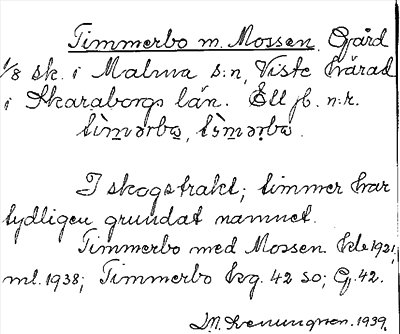 Timmerbo m. Mossen. Gård
1/8 sk. i Malma s:n, Viste härad
i Skaraborgs län. Ell jb. n:r.
I skogstrakt; timmer har
tydligen grundat namnet.
Timmerbo med Mossen kbl 1921,
ml. 1938; Timmerbo kg. 42 SO; Gj. 42.
1939.